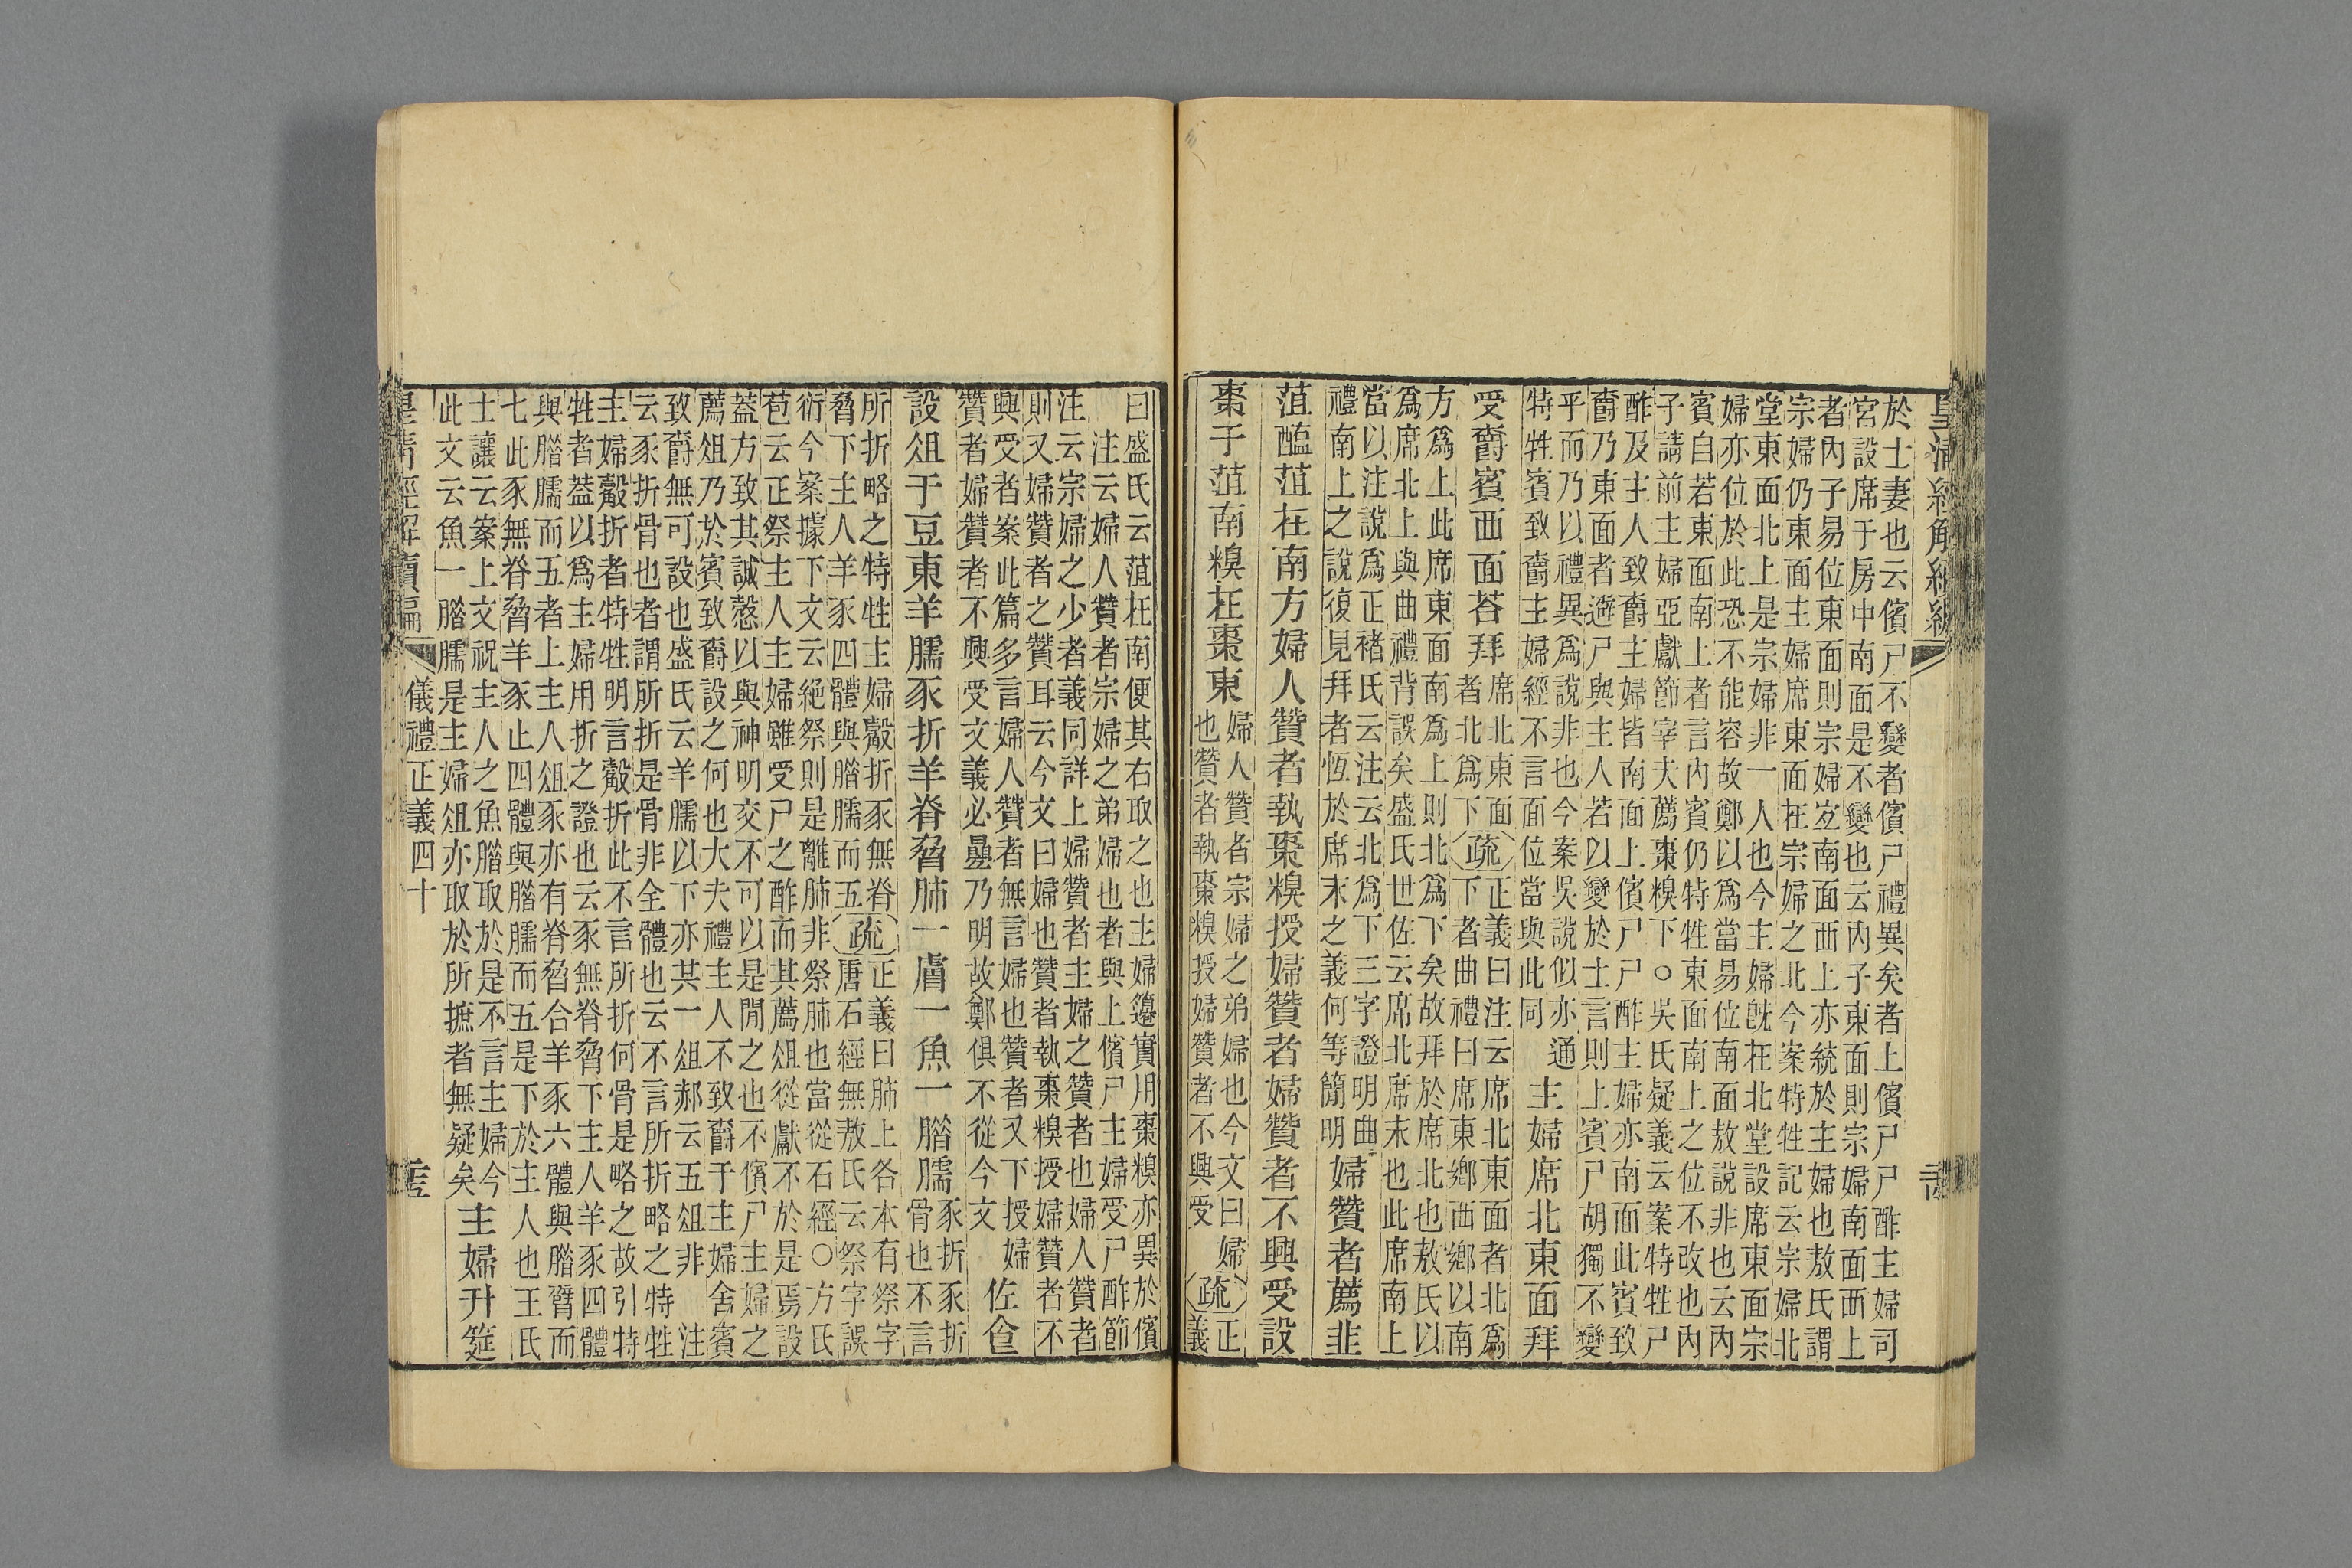 皇清經解續編
於士妻也云儐尸不變者儐尸禮異矣者上儐尸尸酢主婦司
宮設席于房中南面是不變也云內子東面則宗婦南面西上
者內子易位東面則宗婦宐南面西上亦統於主婦也敖氏謂
宗婦仍東面主婦席東面在宗婦之北今案特牲記云宗婦北
堂東面北上是宗婦非一人也今主婦旣在北堂設席東面宗
婦亦位於此恐不能容故鄭以爲當易位南面敖說非也云內
賓自若東面南上者言內賓仍特牲東面南上之位不改也內
子請前主婦亞獻節宰夫薦棗糗下○吳氏疑義云案特牲尸
酢及主人致爵主婦皆南面上儐尸尸酢主婦亦南面此賓致
爵乃東面者遊尸與主人若以變於士言則上賓尸胡獨不變
平而乃以禮異爲說非也今案吳說似亦通
特牲賓致爵主婦經不言面位當與此同
主婦席北東面拜
受爵賓西面荅拜
席北東面
者北爲下
疏
正義曰注云席北東面者北爲
下者曲禮曰席東鄉西鄉以南
方爲上此席東面南爲上則北爲下矣故拜於席北也敖氏以
爲席北上與曲禮背誤矣盛氏世佐云席北席末也此席南上
當以注說爲正褚氏云注云北爲下三字證明曲
禮南上之說復見拜者恆於席末之義何等簡明
婦贊者薦韭
菹醢菹在南方婦人贊者執棗糗授婦贊者婦贊者不興受設
棗于菹南糗在棗東
婦人贊者宗婦之弟婦也今文曰婦
也贊者執棗糗授婦贊者不興受
疏
正
義
曰盛氏云菹在南便其右取之也主婦籩實用棗糗亦異於儐
注云婦人贊者宗婦之弟婦也者與上儐尸主婦受尸酢節
注云宗婦之少者義同詳上婦贊者主婦之贊者也婦人贊者
則又婦贊者之贊耳云今文曰婦也贊者執棗糗授婦贊者不
興受者案此篇多言婦人贊者無言婦也贊者又下授婦
贊者婦贊者不興受文義必曡乃明故鄭俱不從今文
佐食
設俎于豆東羊臑豕折羊脊脅肺一膚一魚一腊臑
豕折豕折
骨也不言
所折略之特牲主婦觳折豕無脊
脅下主人羊豕四體與腊臑而五
疏
正義曰肺上各本有祭字
唐石經無敖氏云祭字誤
衍今案據下文云絕祭則是離肺非祭肺也當從石經○方氏
苞云正祭主人主婦雖受尸之酢而其薦俎從獻不於是焉設
蓋方致其誠慤以與神明交不可以是閒之也不儐尸主婦之
薦俎乃於賓致爵設之何也大夫禮主人不致爵于主婦舍賓
致爵無可設也盛氏云羊臑以下亦其一俎郝云五俎非　注
云豕折骨也者謂所折是骨非全體也云不言所折略之特牲
主婦觳折者特牲明言觳折此不言所折何骨是略之故引特
牲者葢以爲主婦用折之證也云豕無脊脅下主人羊豕四體
與腊臑而五者上主人俎豕亦有脊脅合羊豕六體與腊臂而
七此豕無脊脅羊豕止四體與腊臑而五是下於主人也王氏
士讓云案上文祝主人之魚腊取於是不言主婦今
此文云魚一腊臑是主婦俎亦取於所摭者無疑矣
主婦升筵
皇清經解續編
儀禮正義四十